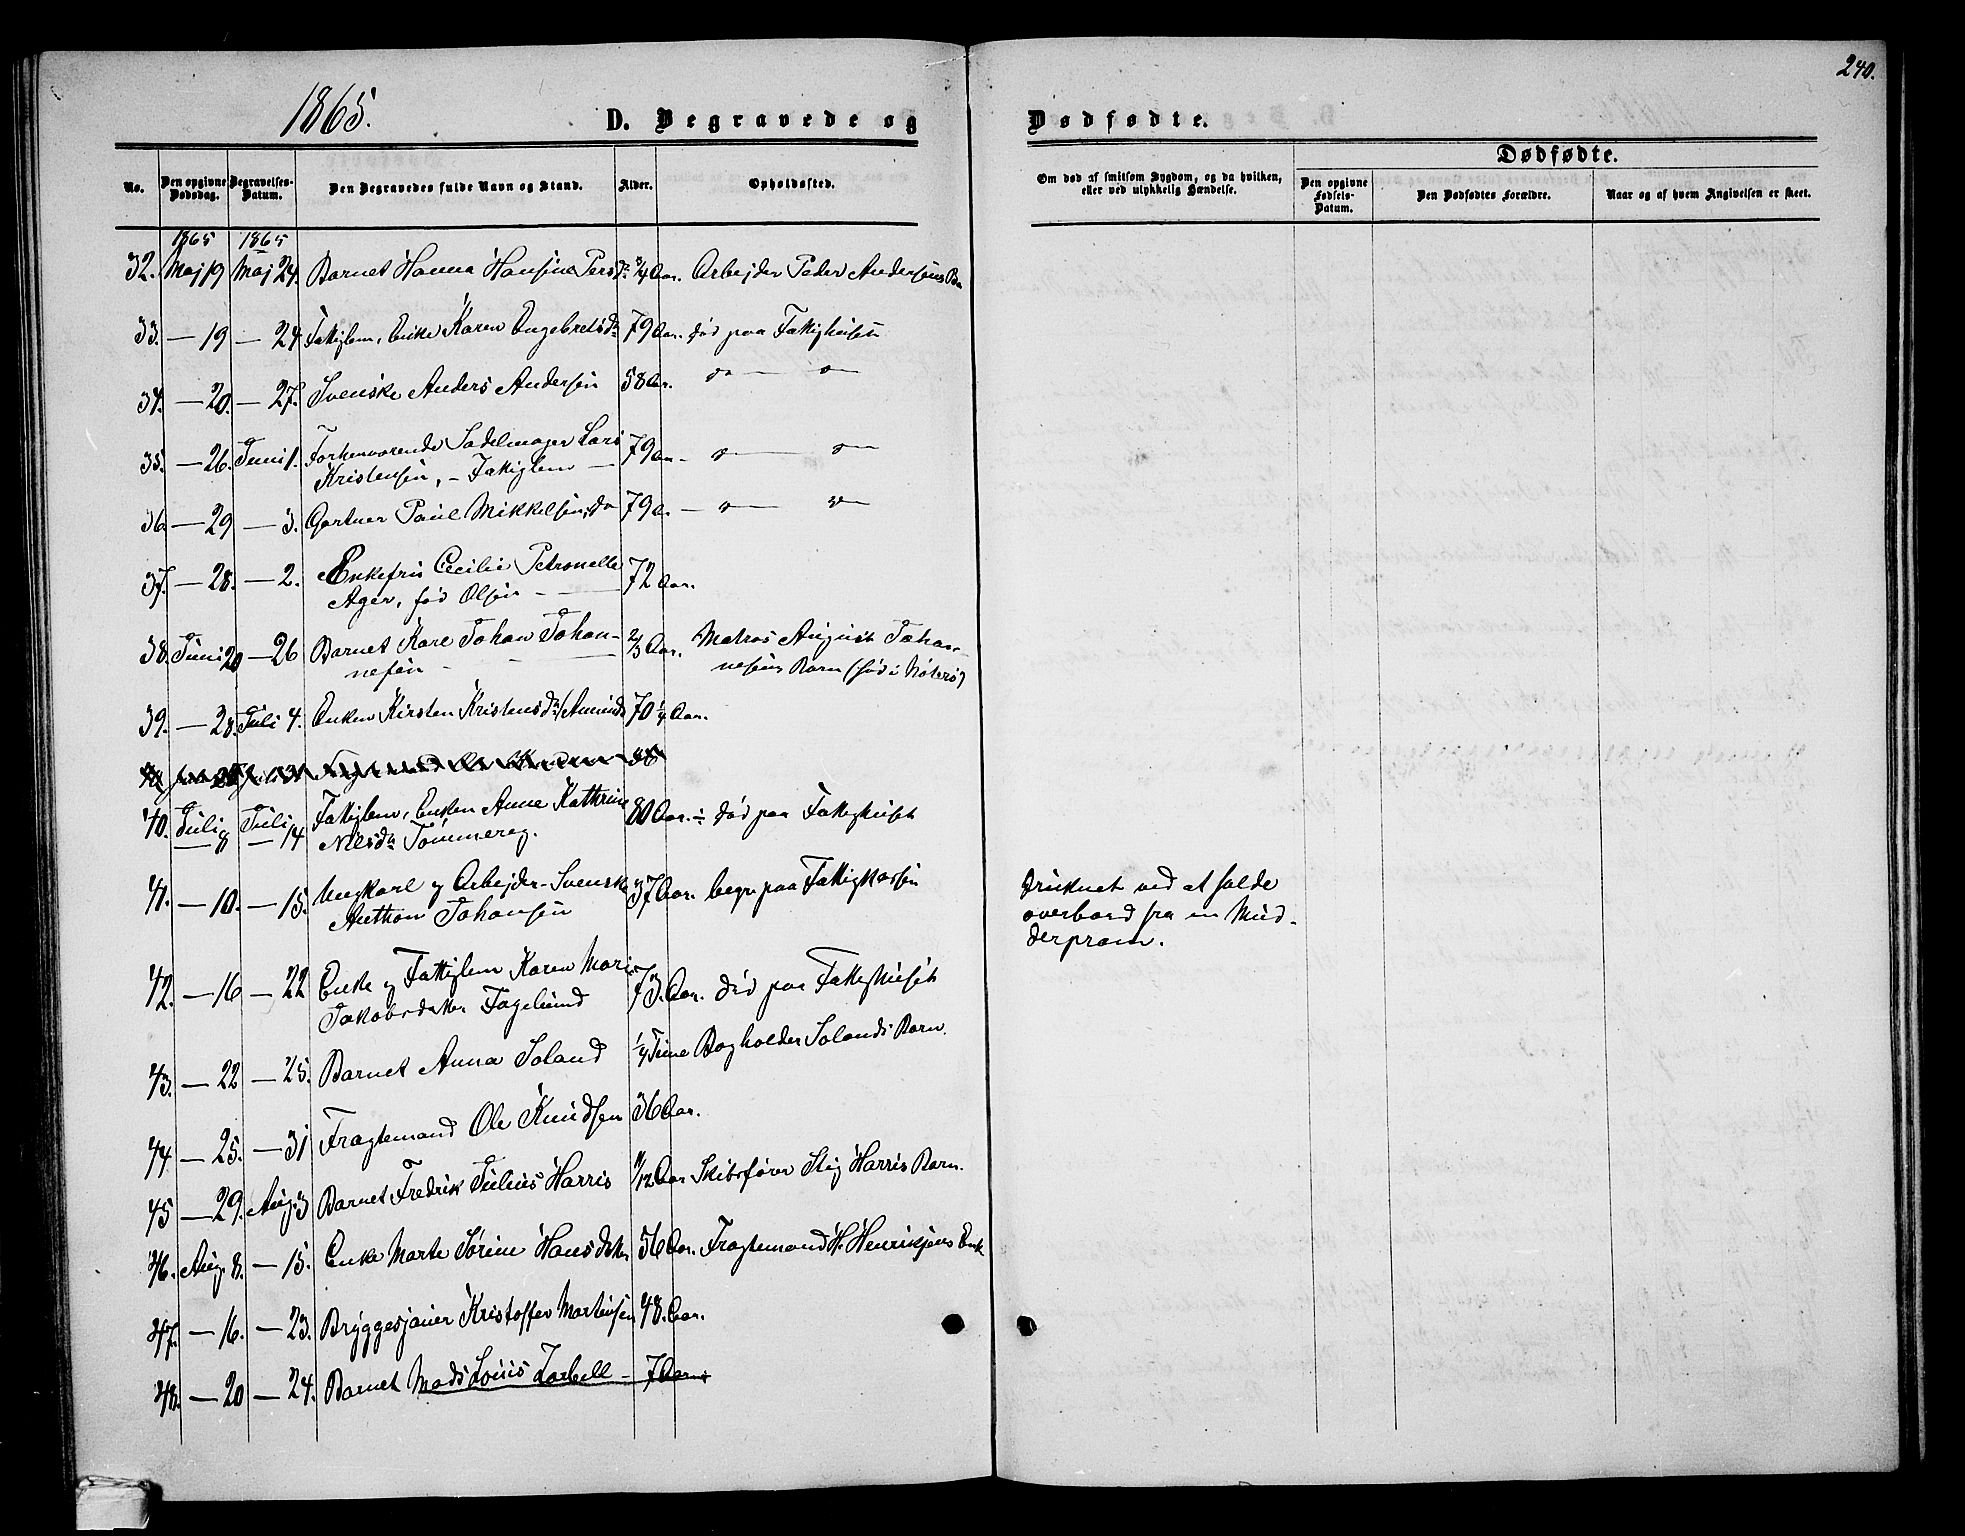 240.
1865.
D. Begravede og Dødfødte.
No.
Den opgivne Dødsdag.
Begravelses-Datum.
Den Begravedes fulde Navn og Stand.
Alder.
Opholdssted.
Om død af smitsom Sygdom, og da hvilken, eller ved ulykkelig Hændelse.
Dødfødte.
Den opgivne Fødsels-Datum.
Den Dødfødtes Forældre.
Naar og af hvem Angivelsen er skeet.
1865 1865
32. Maj 19 Maj 24. Barnet Hanna Hansine Persdr. 3/4 Aar. Arbejder Peder Andersens Bn
33. — 19 — 24 Fattiglem, Enke Karen Engebretsdr 79 Aar. død paa Fattighuset
34. — 20. — 27. Svenske Anders Andersen 58 Ar. do — o—
35. — 26. Juni 1. Forhenværende Sadelmager Lars
Kristensen, – Fattiglem — 79 Aar – o— o—
36 — 29 — 3. Gartner Paul Mikkelsen, do 79 A. — o— o—
37. — 28. — 2. Enkefru Cecilie Petronelle
Ager, fød Olsen — 72 Aar.
38. Juni 20 — 26 Barnet Karl Johan Johan-
nesen — 2/3 Aar. Matros August Johan-
nesens Barn (fød i Nøterø)
39. — 28. Juli 4. Enken Kirsten Kristensdr Amunds 70 1/4 Aar.
40. Juli 8 Juli 14 Fattiglem, Enken Anne Kathrine
Nilsdr Tømmereg. 80 Aar. ÷ død paa Fattighuset
41. — 10. — 15. Ungkarl og Arbejder – Svenske
Anthon Johansen 37 Aar. begr. paa Fattigkassen
Druknet ved at falde
overbord fra en Mud-
derpram.
42. — 16 — 22 Enke og Fattiglem Karen Marie
Jakobsdatter Fagelund 73. Aar. død paa Fattighuset
43. — 22 — 25. Barnet Anna Soland 1/4 Time Bogholder Solands Barn.
44 — 25. — 31 Fragtemand Ole Knudsen 36 Aar.
45 — 29. Aug. 3 Barnet Fredrik Julius Harris 11/12 Aar Skibsfører Stig Harris Barn.
46. Aug. 8. — 15. Enke Marte Sørine Hansdatter 56 Aar. Fragtemand H. Henriksens Enk
47. — 16. — 23. Bryggesjauer Kristoffer Mortensen 48. Aar.
48. — 20 — 24. Barnet Mads Louis Zarbell – 7 Aar